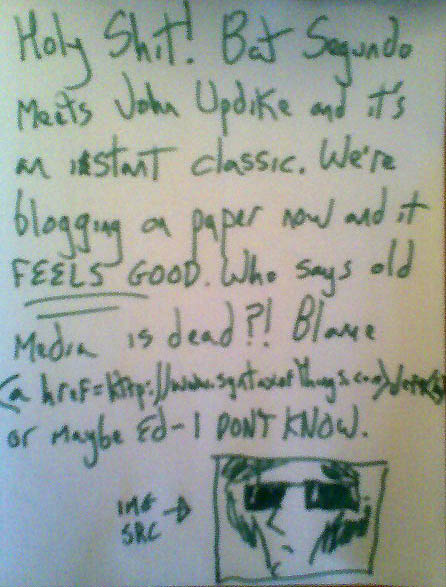 Holy Shit! Bat Segundo
Meets John Updike and it's
an instant classic. We're
blogging on paper now and it
FEELS GOOD. Who says old
Media is dead?! Blame
<a href=http://www.syntaxofthings.com>
or maybe Ed-I DONT KNOW.
IMG
SRC